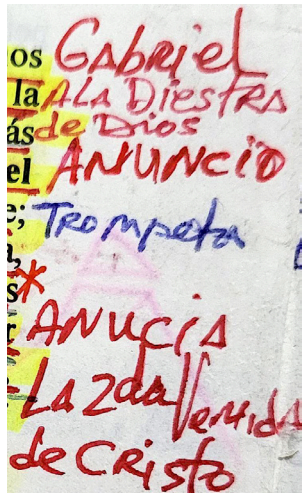 os GAbRiel
la A LA DiestRA
ás de Dios
el ANUNCIO
e; TROMpeta
,
s*
r ANUCiA
LA 2da Venida
de CRisto